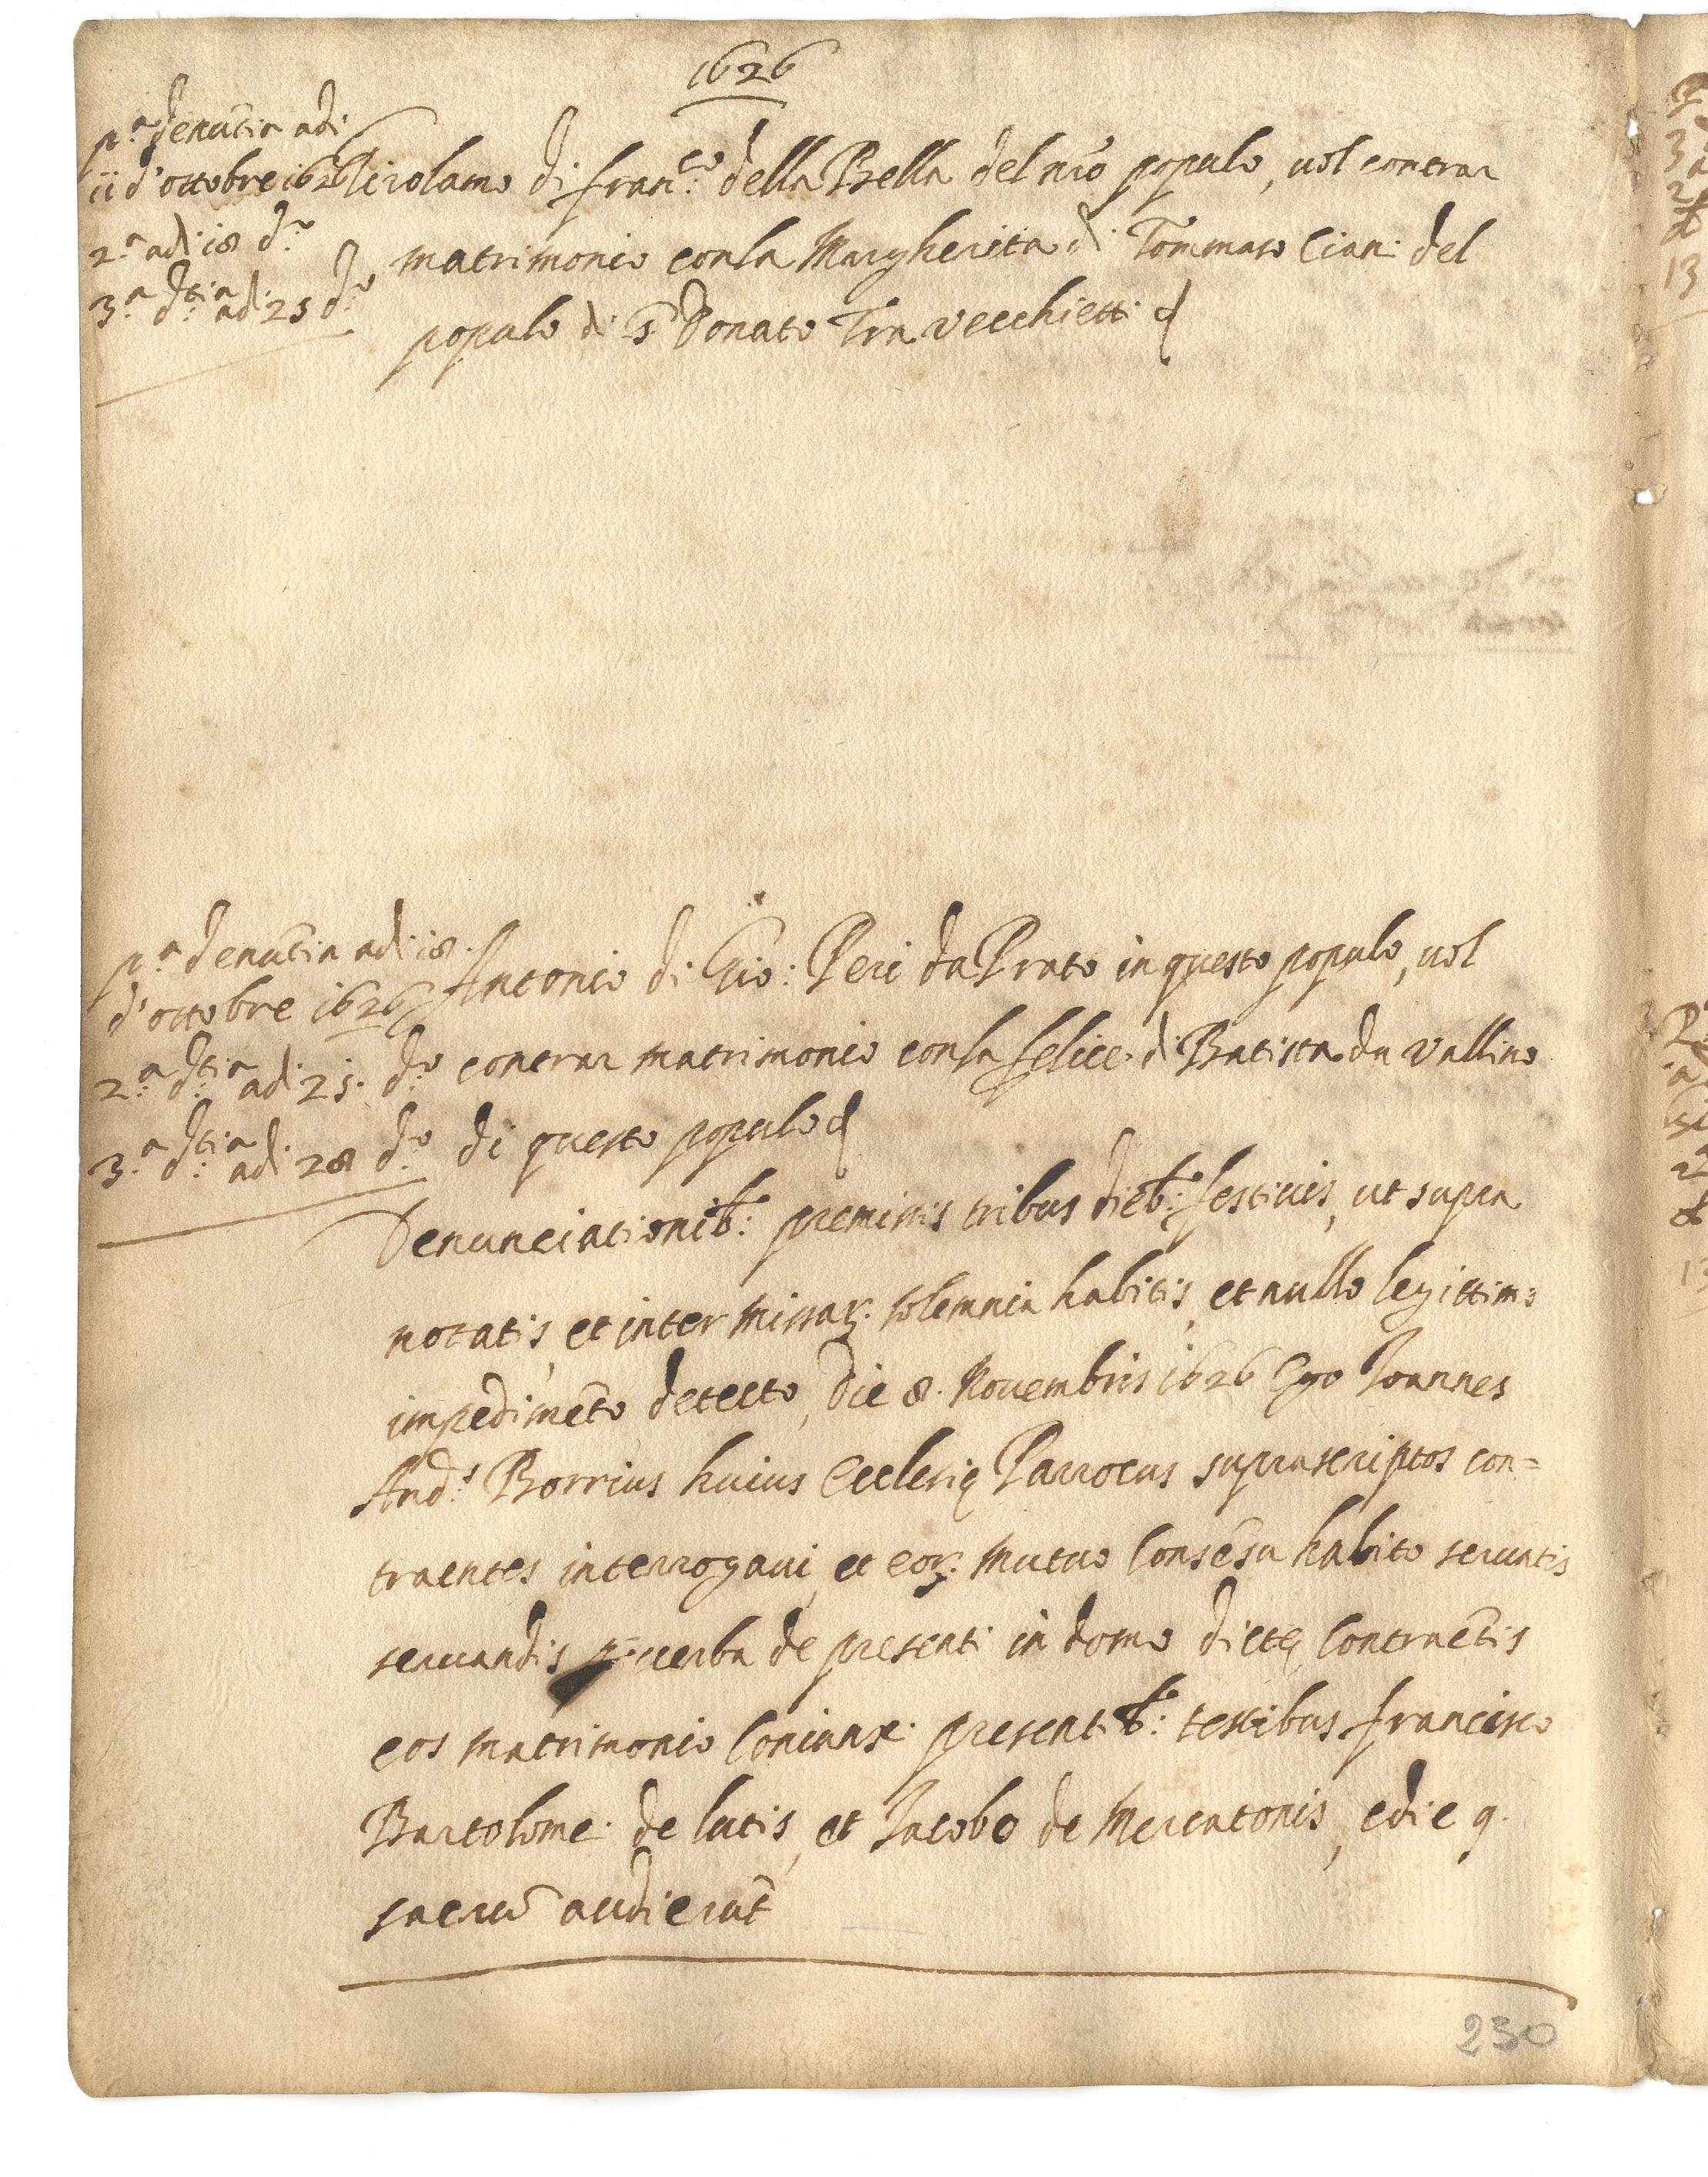 1626
p.a denũtia adi
ii d'ottobre 1626
2.a adi 18 d.o
3.a d.tia adi 25 d.o
Girolamo di fran.co della Bella del nr̃o populo, uol contrar
matrimonio con la Margherita di Tommaso Ciani del
populo di S. Donato Tra Vecchietti
p.a denũtia adi 18.
d'ottobre 1626
2.a d.tia adi 25. d.o
3.a d.tia adi 28 d.o
Antonio di Gio: Peri da Prato in questo populo, uol
contrar matrimonio con la felice di Batista da Vallino
di questo populo
Denunciationib.: premissis tribus dieb.: festiuis, ut supra
notatis, et inter missaꝝ solemnia habitis, et nullo legittimo
impedimẽto detecto, die 8. Nouembris 1626 Ego Joannes
And.s Borrius huius Ecclesię Parrocus suprascriptos con=
traentes interrogaui, et eoꝝ mutuo Consẽsu habito seruatis
seruandis p uerba de presenti in domo dictę Contraẽtis
eos matrimonio Coniunxi presentib.: testibus francisco
Bartolomei de lutis, et Jacobo de Mercatonis, e die 9.
sacrũ audierũt
230